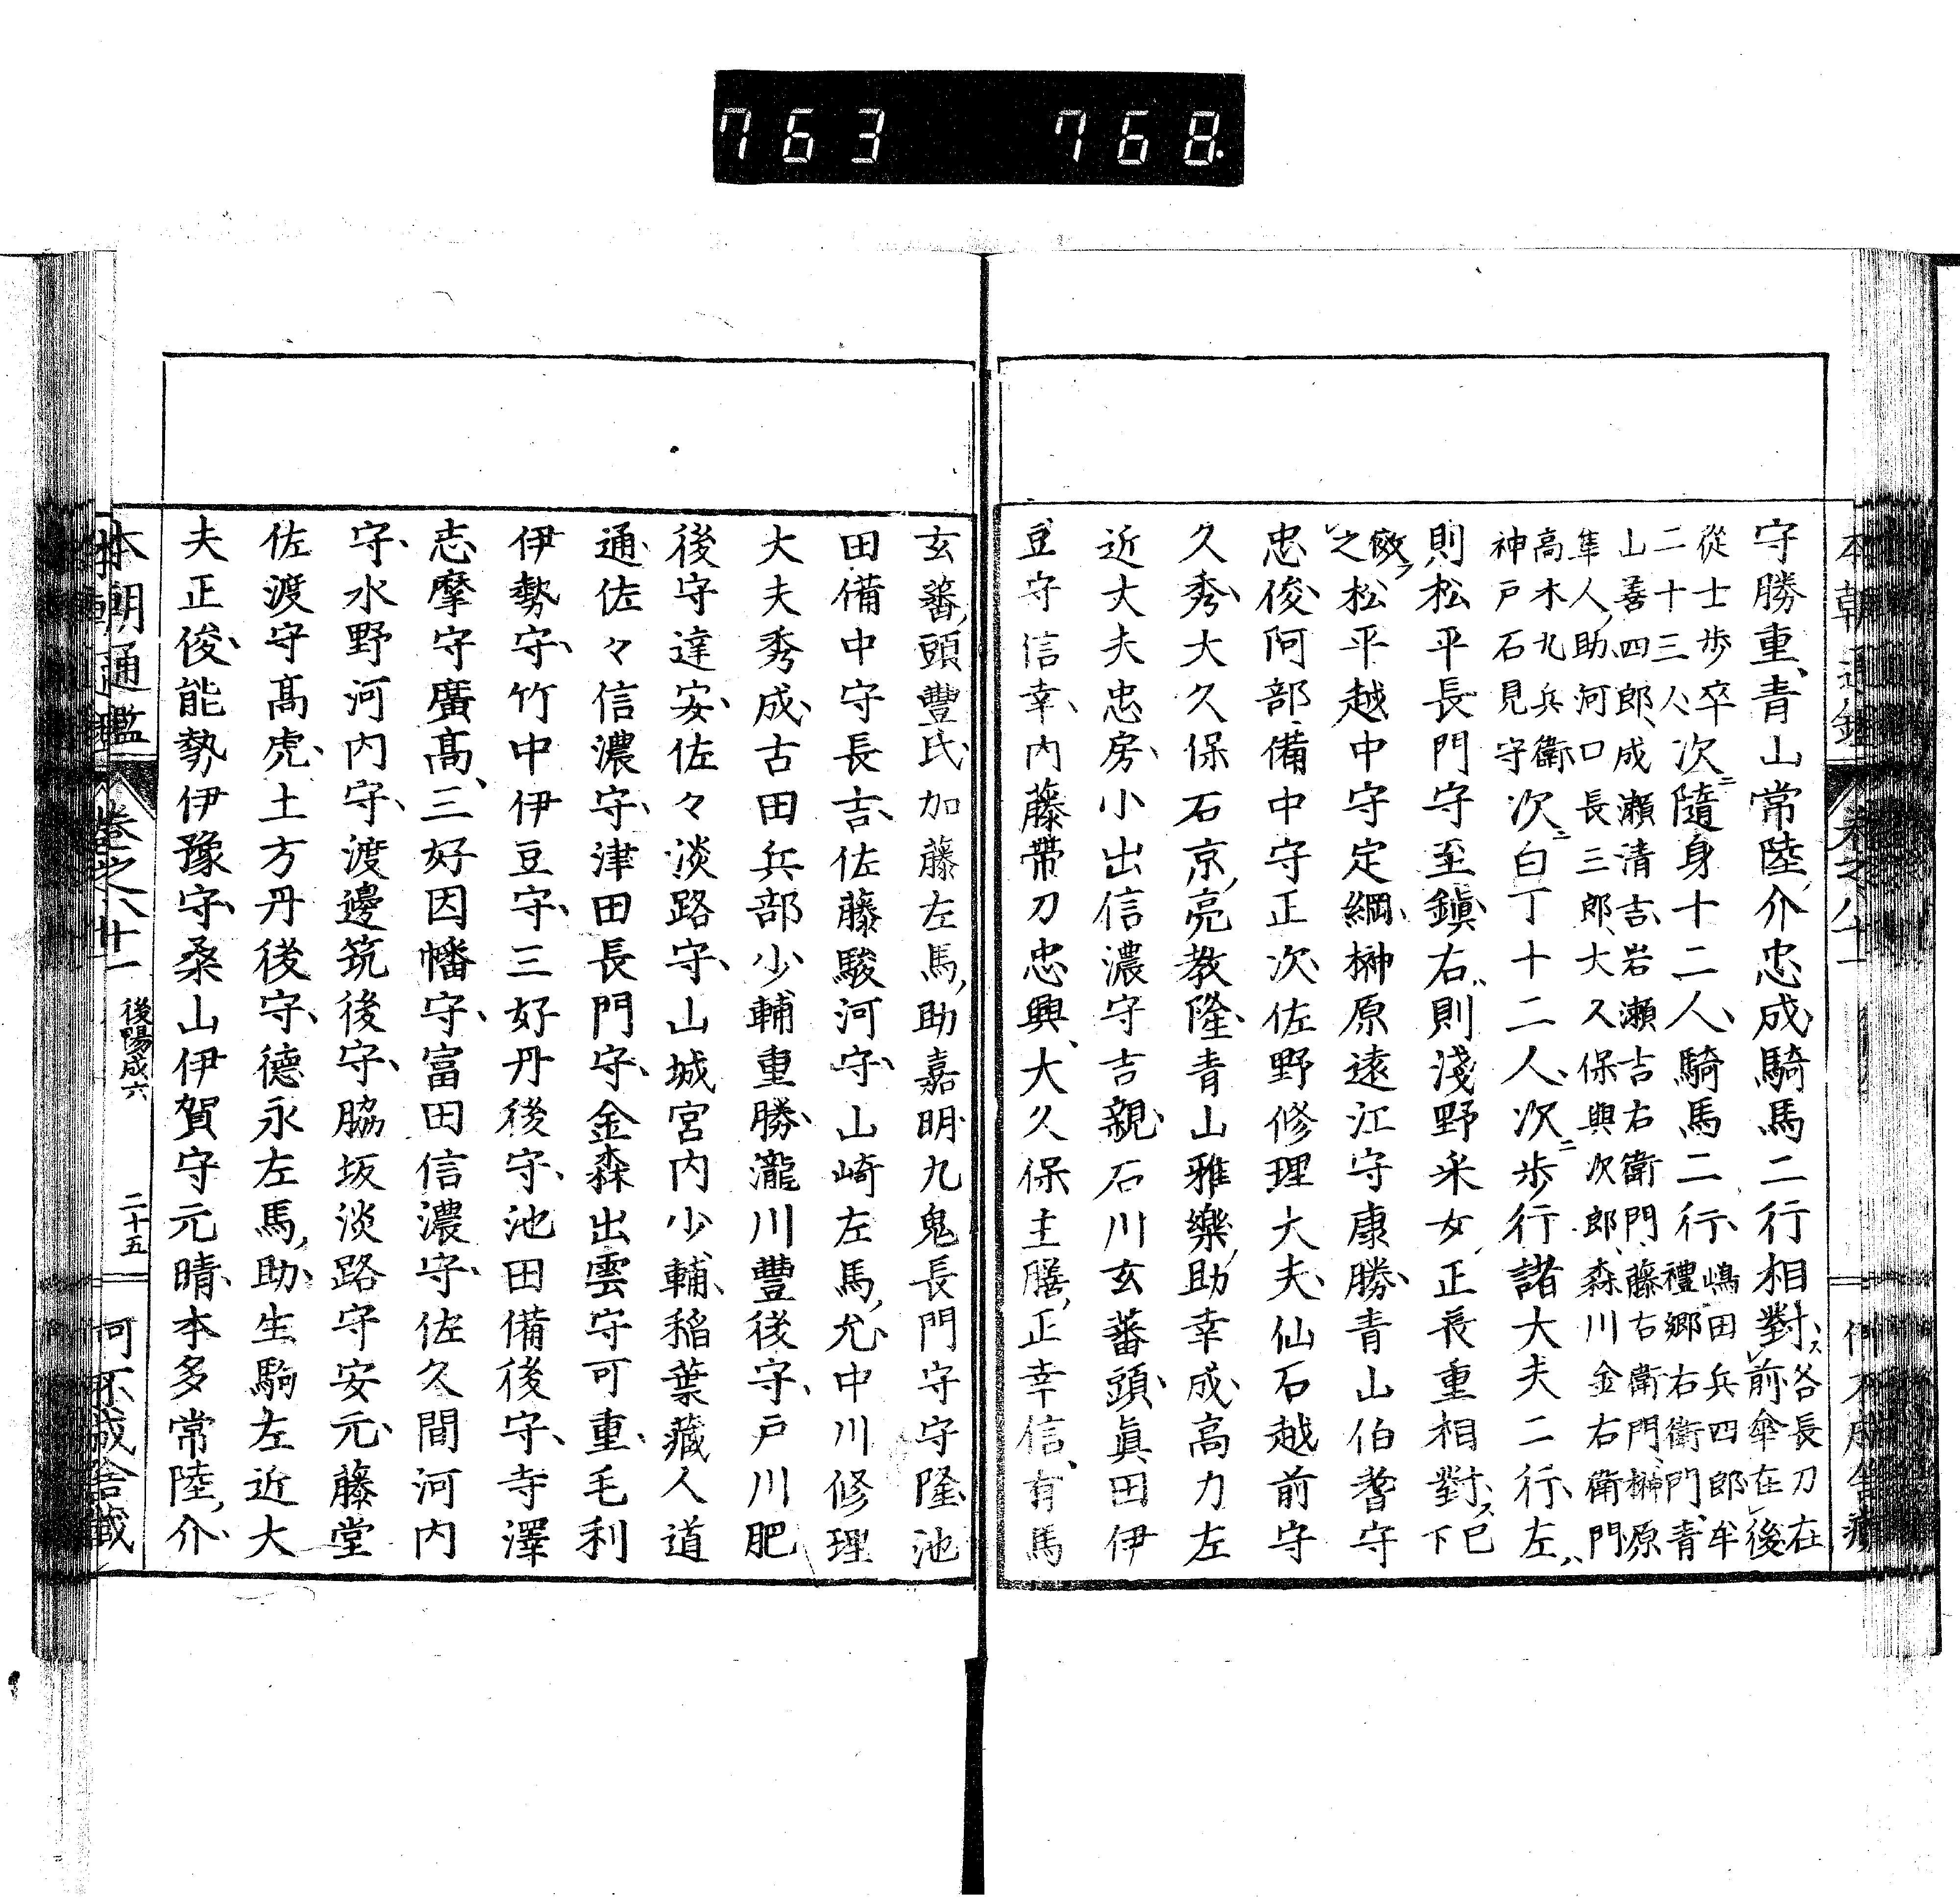 763 768.
守勝重、青山常陸介忠成、騎馬二行相對、各長刀在前傘在後
從士步卒二十三人、次隨身十二人、騎馬二行、嶋田兵四郎、牟禮郷右衛門、青
山善四郎、成瀬清吉、岩瀬吉右衛門、藤右衛門、榊原隼人助、河口長三郎、大久保與次郎、森川金右衛門
高木九兵衛神戸石見守次白丁十二人、次步行諸大夫二行、左
則松平長門守至鎭、右則淺野采女正長重相對、已下
傚之松平越中守定綱、榊原遠江守康勝、青山伯耆守
忠俊、阿部備中守正次、佐野修理大夫、仙石越前守
久秀、大久保石京亮教隆、青山雅樂助幸成、高力左
近大夫忠房、小出信濃守吉親、石川玄蕃頭、眞田伊
豆守信幸、內藤帶刀忠興、大久保主膳正幸信、有馬
玄蕃頭豐氏、加藤左馬助嘉明、九鬼長門守守隆、池
田備中守長吉、佐藤駿河守、山崎左馬允、中川修理
大夫秀成、古田兵部少輔重勝、瀧川豐後守、戸川肥
後守達安、佐々淡路守、山城宮內少輔、稲葉藏人道
通、佐々信濃守、津田長門守、金森出雲守可重、毛利
伊勢守、竹中伊豆守、三好丹後守、池田備後守、寺澤
志摩守廣髙、三好因幡守、富田信濃守、佐久間河內
守、水野河內守、渡邊筑後守、脇坂淡路守安元、藤堂
佐渡守髙虎、土方丹後守、德永左馬助、生駒左近大
夫正俊、能勢伊豫守、桑山伊賀守元晴、本多常陸介、
本朝通鑑 卷之八十一 後陽成六 二十五